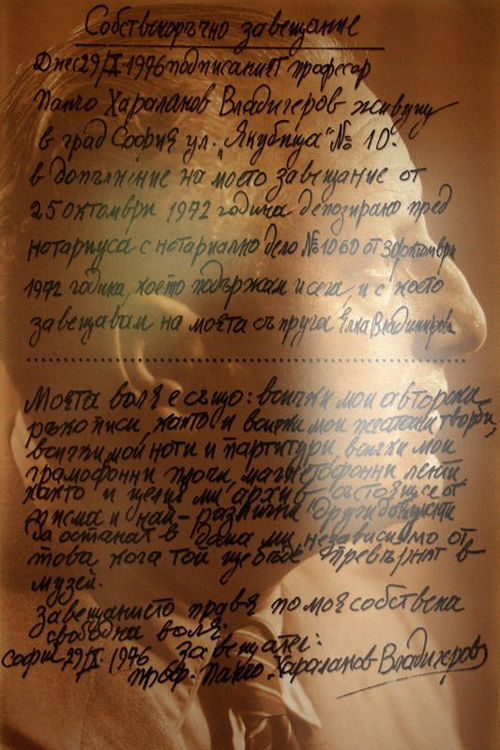 Собственоръчно завещание
Днес 29/X-1976 подписаният професор
Панчо Хараланов Владигеров живущ
в град София ул. „Якубица" № 10.
в допълнение на моето завещание от
25 октомври 1972 година депозирано пред
нотариуса с нотариално дело № 1060 от 30 октомври
1972 година, което подържам и сега, и с което
завещавам на моята съпруга Елка Владигерова
Моята воля е също: всички мои авторски
ръкописи, както и всички мои печатани творби,
всички мой ноти и партитури, всички мои
грамофонни плочи, магнетофонни ленти
както и целия ми архив състоящ се от
писма и най-различни други документи
да останат в дома ми, независимо от
това, кога той ще бъде превърнат в
музей.
Завещанието правя по моя собствена
свободна воля.
София, 29/X 1976 Завещател:
проф. Панчо Хараланов Владигеров